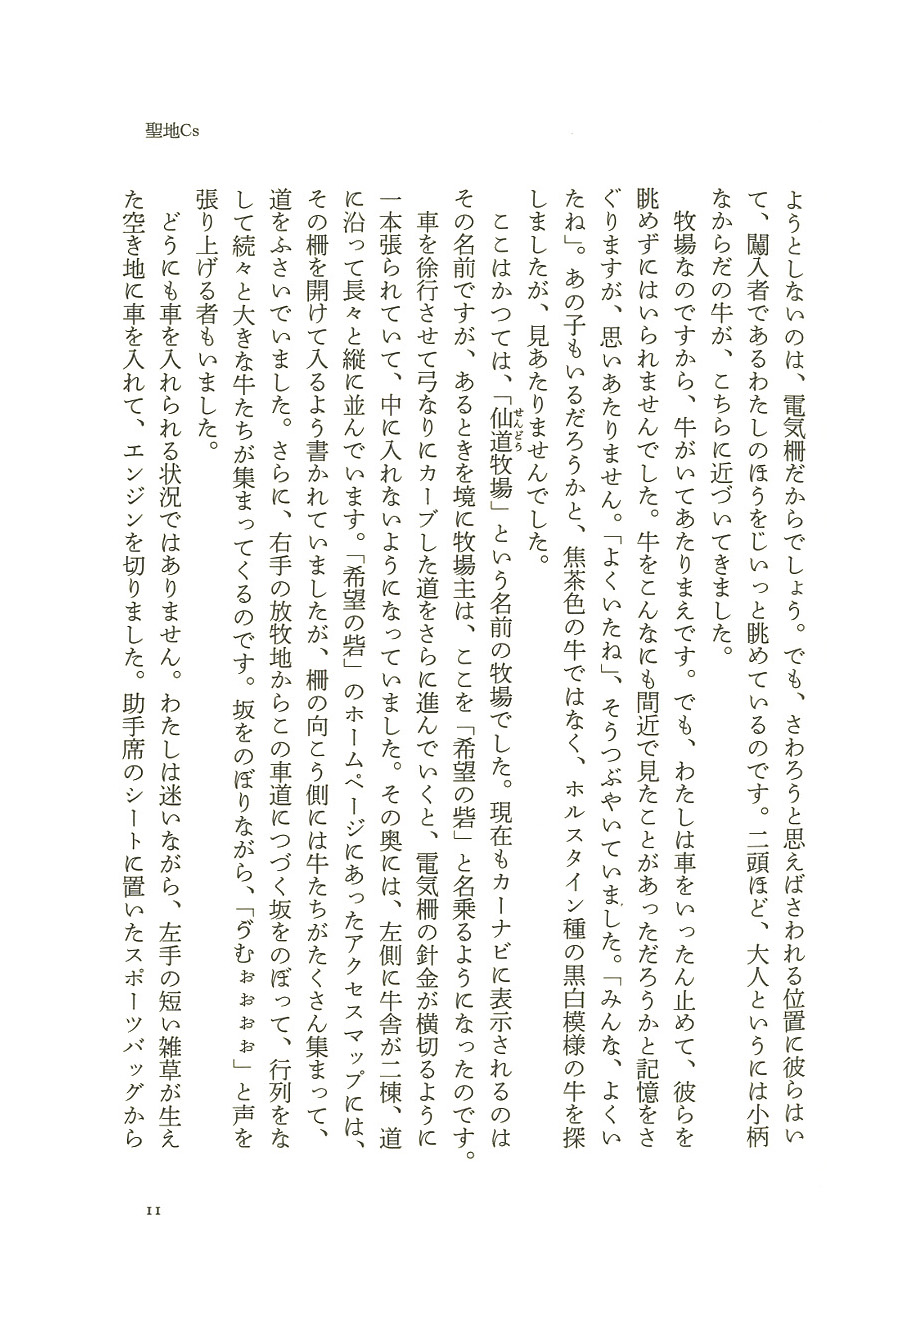 聖地Cs
ようとしないのは、電気柵だからでしょう。でも、さわろうと思えばさわれる位置に彼らはい
て、闖入者であるわたしのほうをじいっと眺めているのです。二頭ほど、大人というには小柄
なからだの牛が、こちらに近づいてきました。
牧場なのですから、牛がいてあたりまえです。でも、わたしは車をいったん止めて、彼らを
眺めずにはいられませんでした。牛をこんなにも間近で見たことがあっただろうかと記憶をさ
ぐりますが、思いあたりません。「よくいたね」、そうつぶやいていました。「みんな、よくい
たね」。あの子もいるだろうかと、焦茶色の牛ではなく、ホルスタイン種の黒白模様の牛を探
しましたが、見あたりませんでした。
ここはかつては、「仙道牧場」という名前の牧場でした。現在もカーナビに表示されるのは
せんどう
その名前ですが、あるときを境に牧場主は、ここを「希望の砦」と名乗るようになったのです。
車を徐行させて弓なりにカーブした道をさらに進んでいくと、電気柵の針金が横切るように
一本張られていて、中に入れないようになっていました。その奥には、左側に牛舎が二棟、道
に沿って長々と縦に並んでいます。「希望の砦」のホームページにあったアクセスマップには、
その柵を開けて入るよう書かれていましたが、柵の向こう側には牛たちがたくさん集まって、
道をふさいでいました。さらに、右手の放牧地からこの車道につづく坂をのぼって、行列をな
して続々と大きな牛たちが集まってくるのです。坂をのぼりながら、「ゔむぉぉぉぉ」と声を
張り上げる者もいました。
どうにも車を入れられる状況ではありません。わたしは迷いながら、左手の短い雑草が生え
た空き地に車を入れて、エンジンを切りました。助手席のシートに置いたスポーツバッグから
11